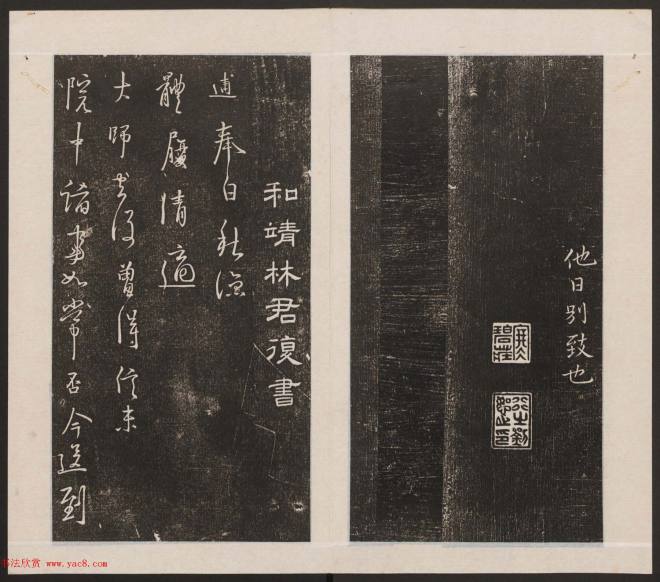 他日別致也
和靖林君復書
逋奉白秋涼
體履清適
大師去後曾得信未
院中諸事如常否今送到
书法欣赏 www.yac8.com